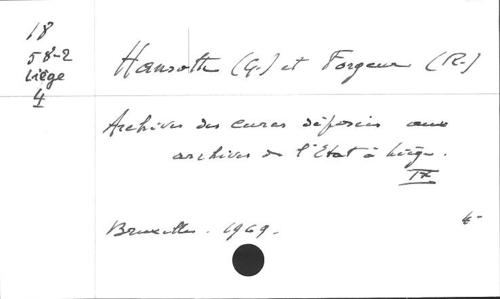 18
58-2
Liège
4
Hansotte (G.) et Forgeur (R.)
Archives des cures déposées aux
archives de l'Etat à Liège.
IX
Bruxelles. 1969.